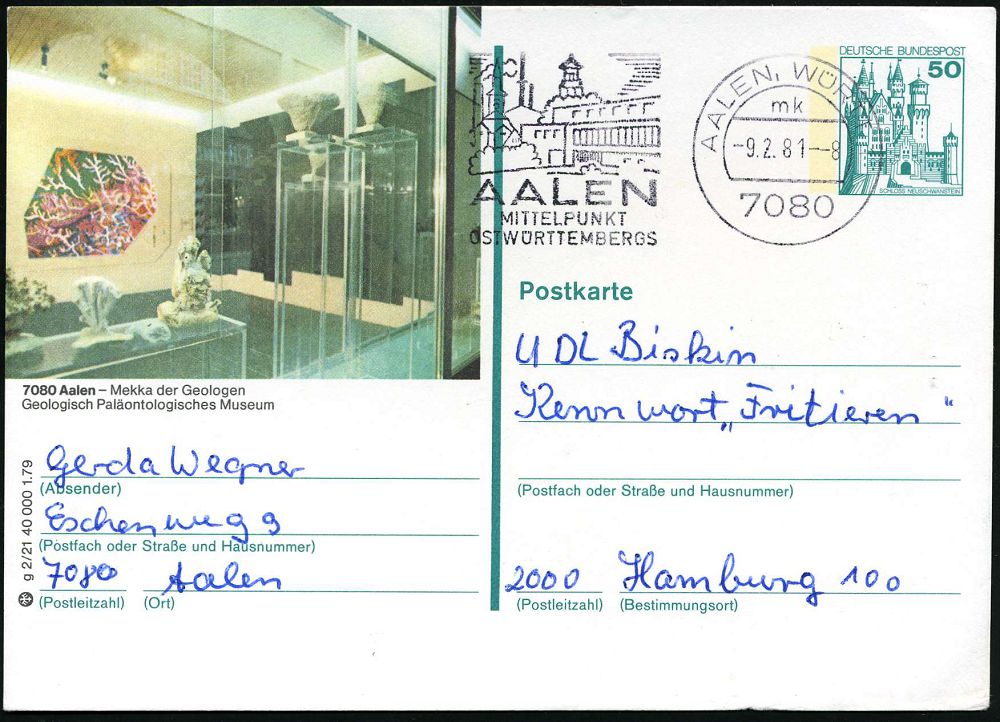 7080 Aalen – Mekka der Geologen
Geologisch Paläontologisches Museum
Gerda Wegner
(Absender)
Eschenweg 9
(Postfach oder Straße und Hausnummer)
7080 Aalen
(Postleitzahl) (Ort)
g 2/21 40 000 1.79
AALEN
MITTELPUNKT
OSTWÜRTTEMBERGS
AALEN, WÜRTT
mk
-9.2.81--8
7080
DEUTSCHE BUNDESPOST
50
SCHLOSS NEUSCHWANSTEIN
Postkarte
UDL Biskin
Kennwort „Fritieren“
(Postfach oder Straße und Hausnummer)
2000 Hamburg 100
(Postleitzahl) (Bestimmungsort)